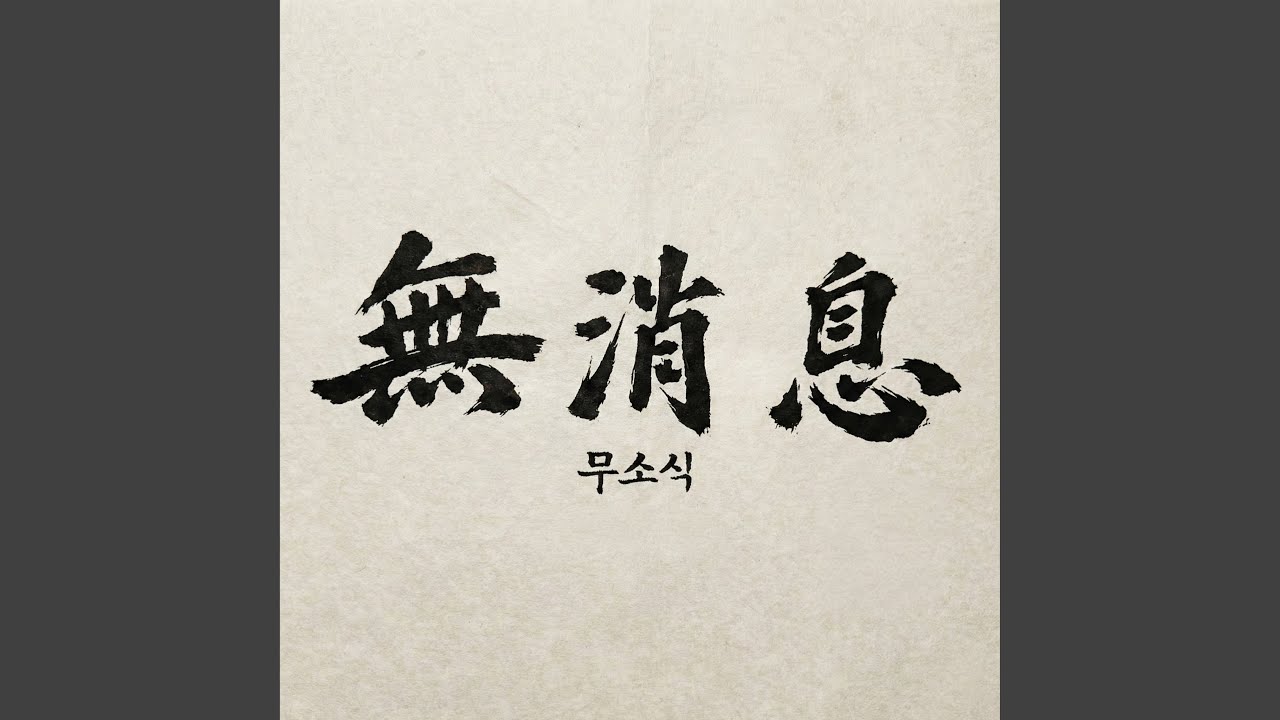 無消息
무소식